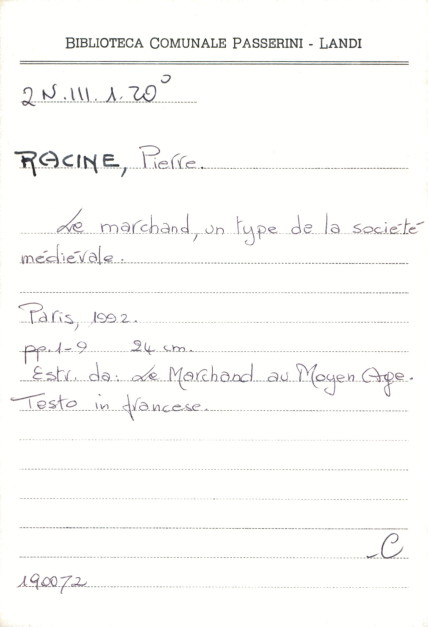 BIBLIOTECA COMUNALE PASSERINI - LANDI
2 N.III.1.20°
RACINE, Pierre.
Le marchand, un type de la societé
médiévale.
Paris, 1992.
pp.1-9 24 cm.
Estr. da: Le Marchand au Moyen Age.
Testo in francese.
C
190072